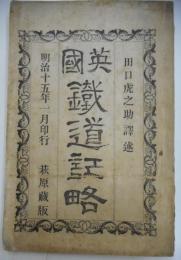 田口虎之助譯述
英國鐵道記略
明治十五年一月印行
萩原藏版